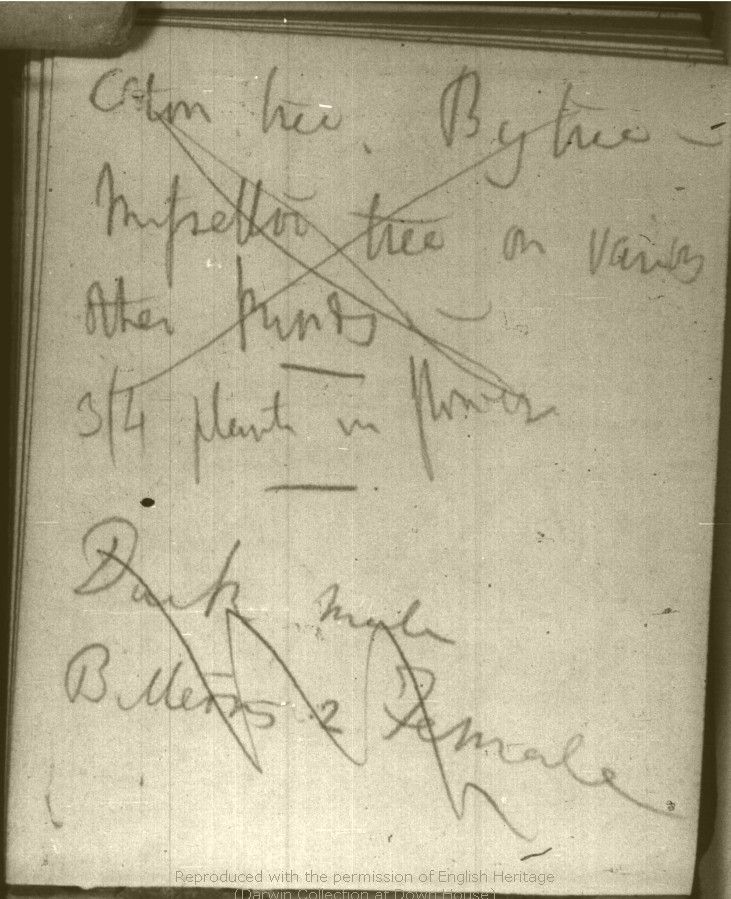 Coton tree. Big tree —
Misseltoe tree on various
other kinds —
3/4 plants in flower
Dark male
2 Female
Reproduced with the permission of English Heritage
(Darwin Collection at Down House)